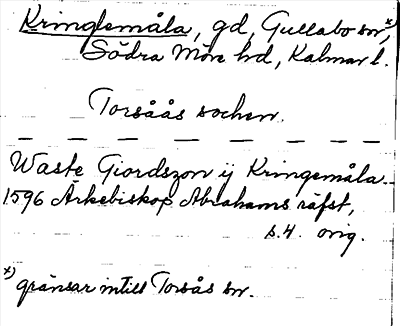 Kringlemåla, gd, Gullabo sn,ˣ⁾
Södra Möre hd, Kalmar l.
Torsåås sochen.
Waste Giordszon ij Kringemåla.
1596 Ärkebiskop Abrahams räfst,
s. 4. orig.
x) gränsar intill Torsås sn.